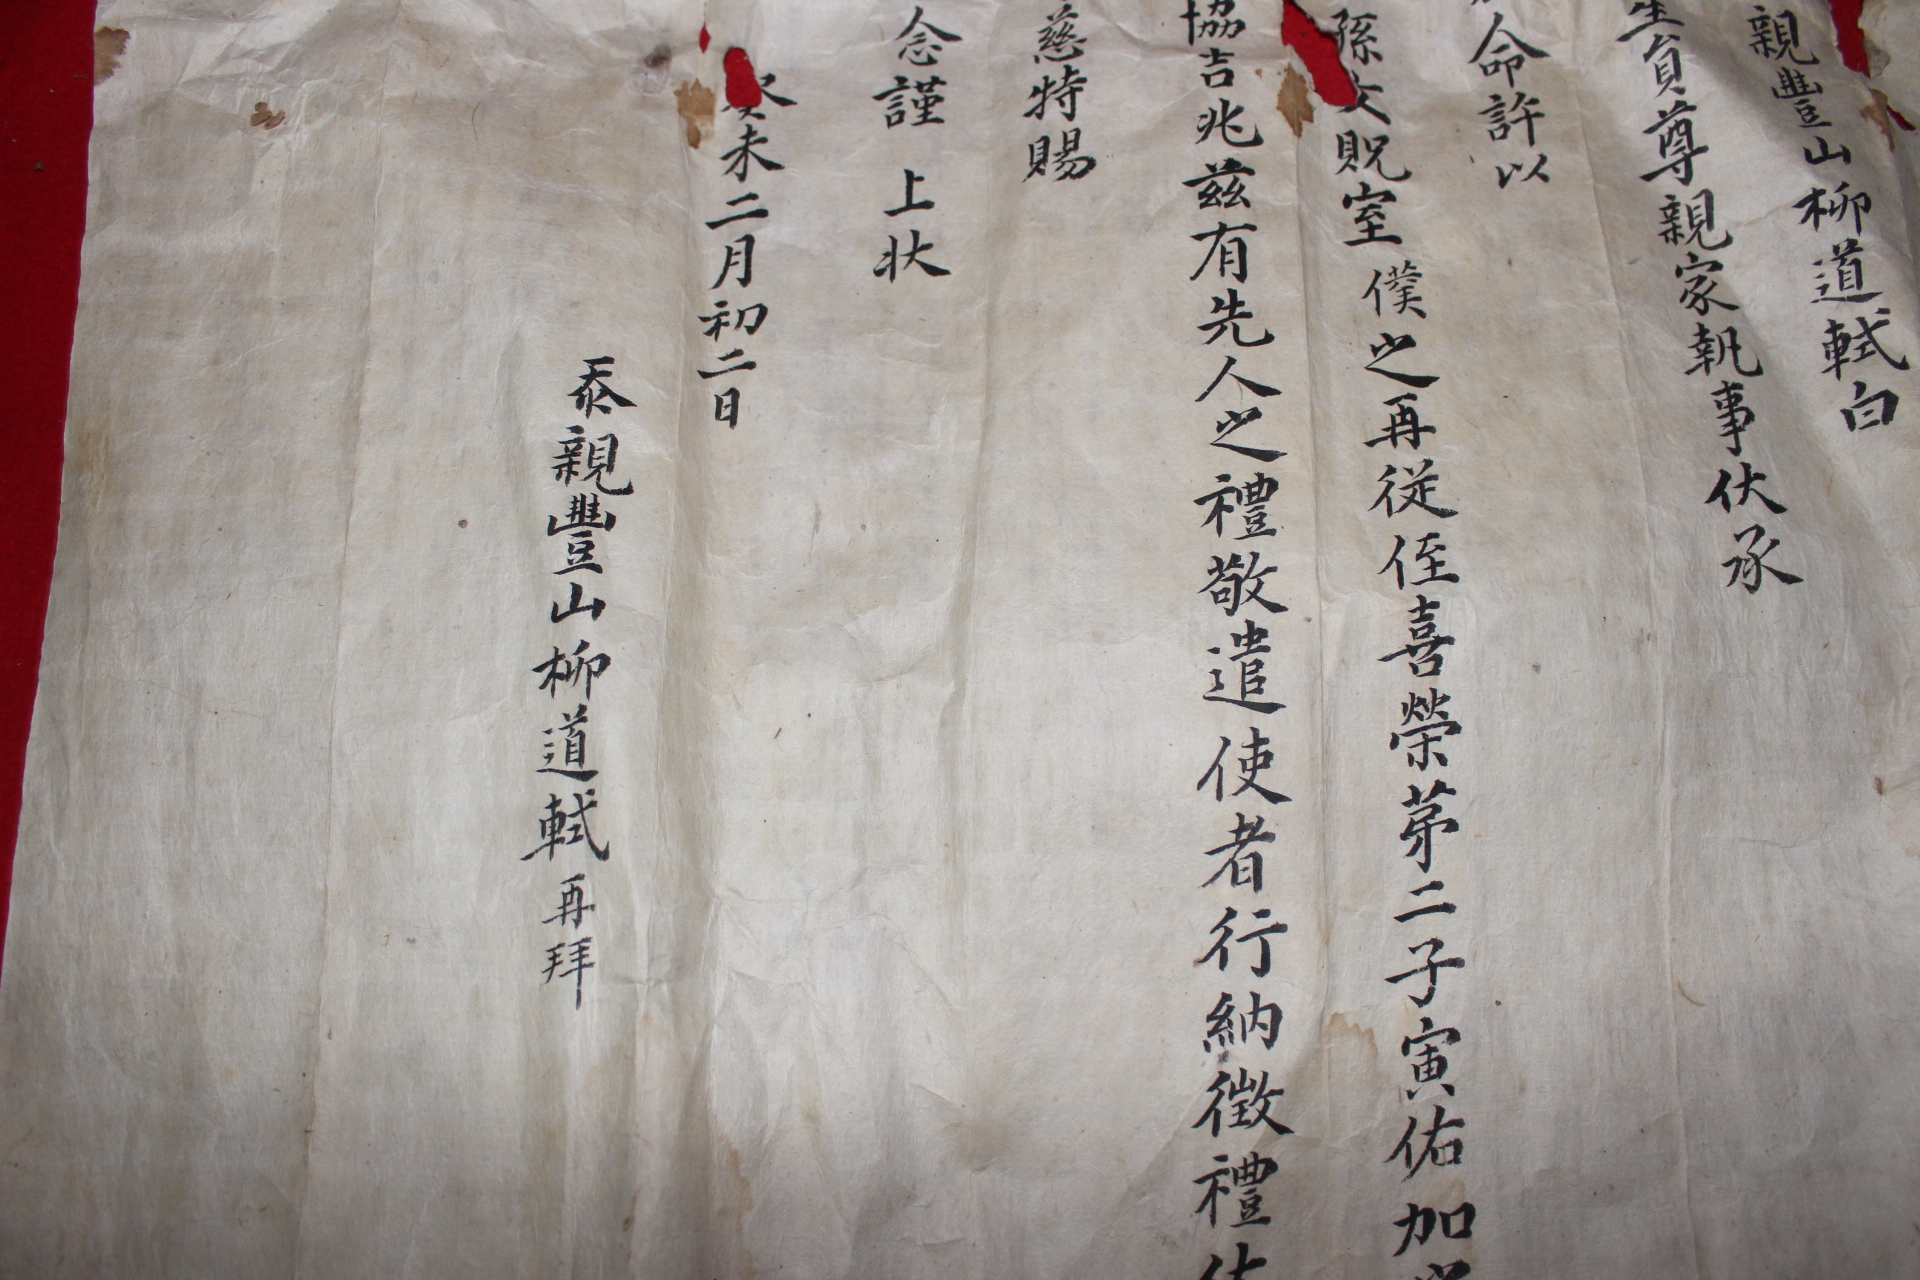 親豐山柳道軾白
生員尊親家執事伏承
命許以
孫女貺室僕之再従侄喜榮苐二子寅佑加
協吉兆茲有先人之禮敬遣使者行納徵禮伏
慈特賜
念謹 上狀
癸未二月初二日
忝親豐山柳道軾再拜